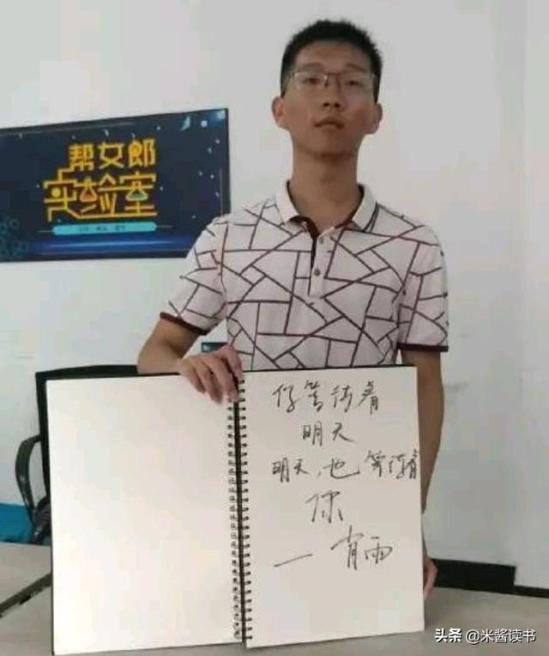 帮女郎
实验室
你等待着
明天
明天,也等待着
你
— 肖雨
头条 @米酱读书